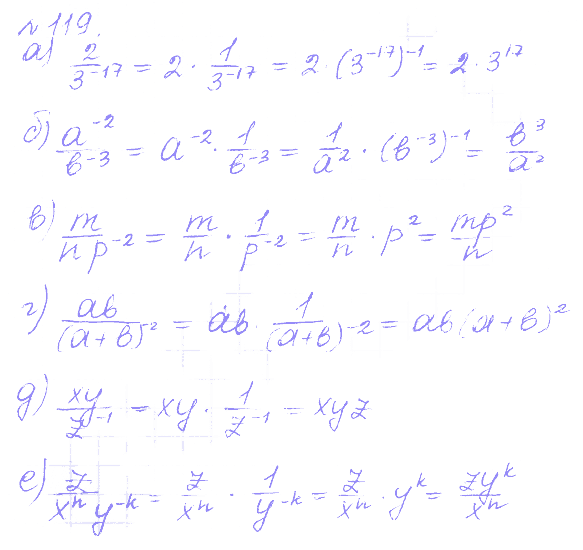 №119.
а) 2/3⁻¹⁷ = 2 · 1/3⁻¹⁷ = 2 · (3⁻¹⁷)⁻¹ = 2 · 3¹⁷
б) a⁻²/b⁻³ = a⁻² · 1/b⁻³ = 1/a² · (b⁻³)⁻¹ = b³/a²
в) m/np⁻² = m/n · 1/p⁻² = m/n · p² = mp²/n
г) ab/(a+b)⁻² = ab · 1/(a+b)⁻² = ab(a+b)²
д) xy/z⁻¹ = xy · 1/z⁻¹ = xyz
е) z/xⁿy⁻ᵏ = z/xⁿ · 1/y⁻ᵏ = z/xⁿ · yᵏ = zyᵏ/xⁿ